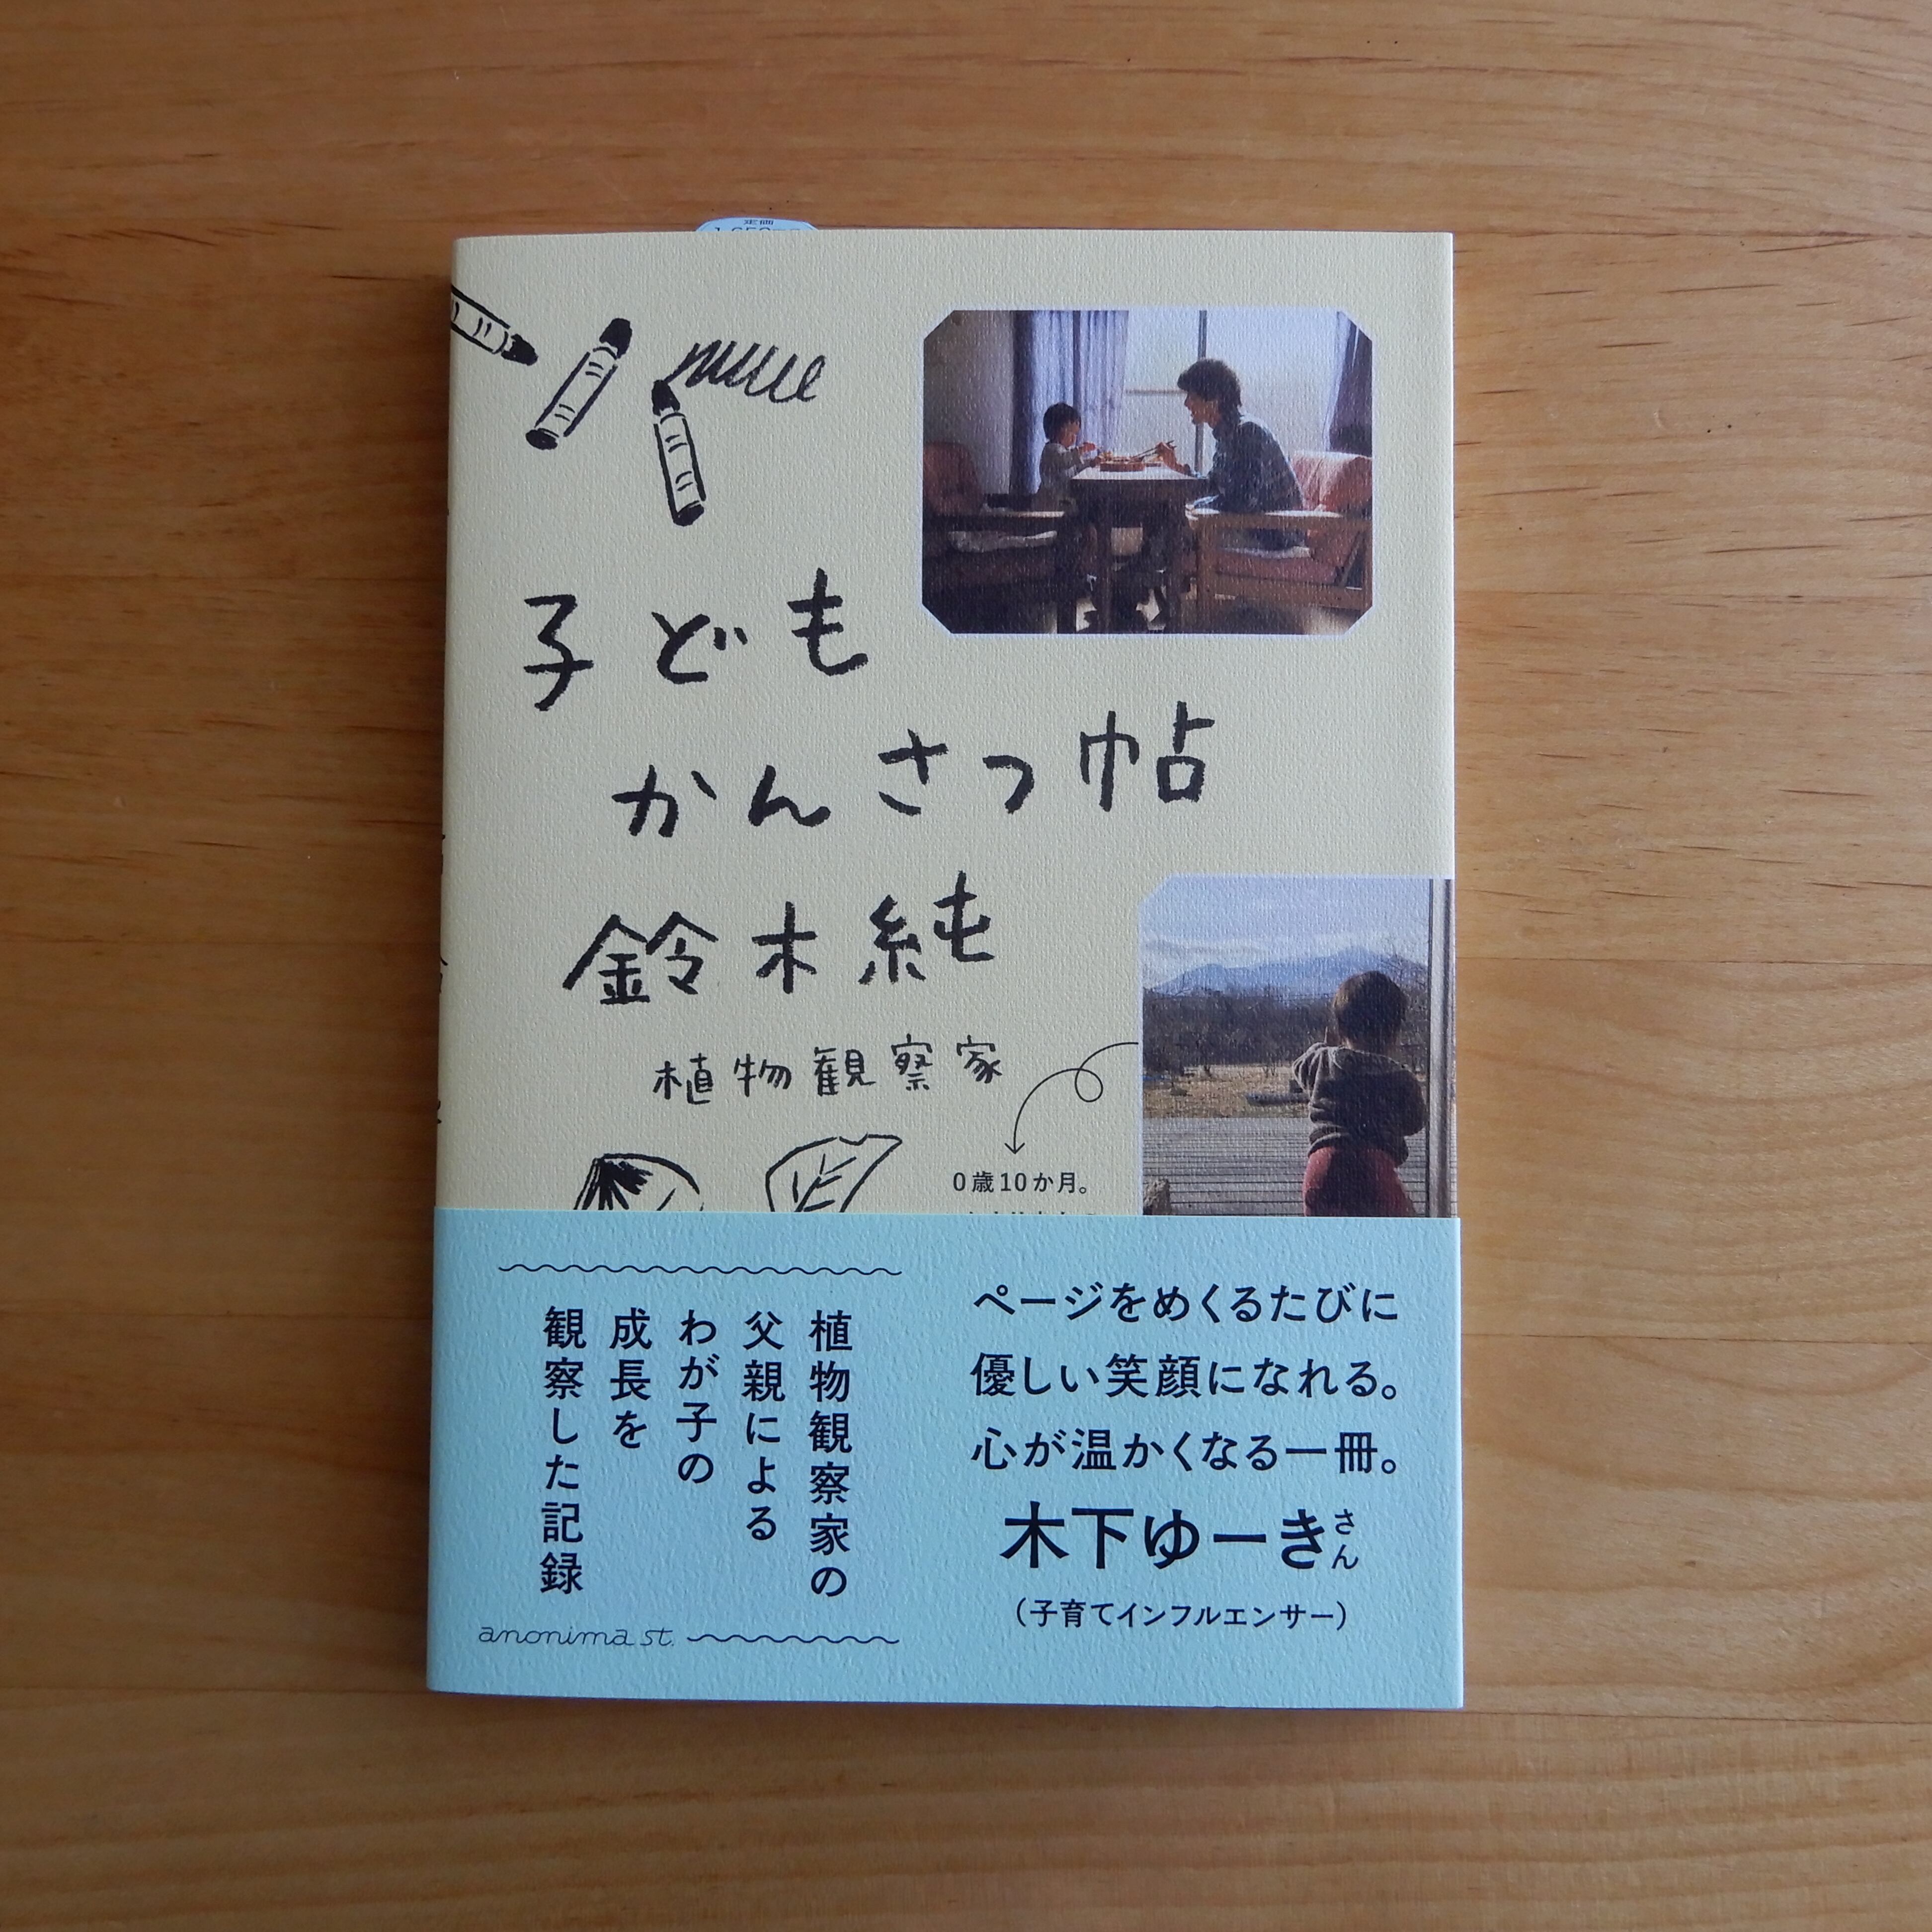 定価
子ども
かんさつ帖
鈴木純
植物観察家
0歳10か月。
ページをめくるたびに
優しい笑顔になれる。
心が温かくなる一冊。
木下ゆーきさん
（子育てインフルエンサー）
植物観察家の
父親による
わが子の
成長を
観察した記録
anonima st.